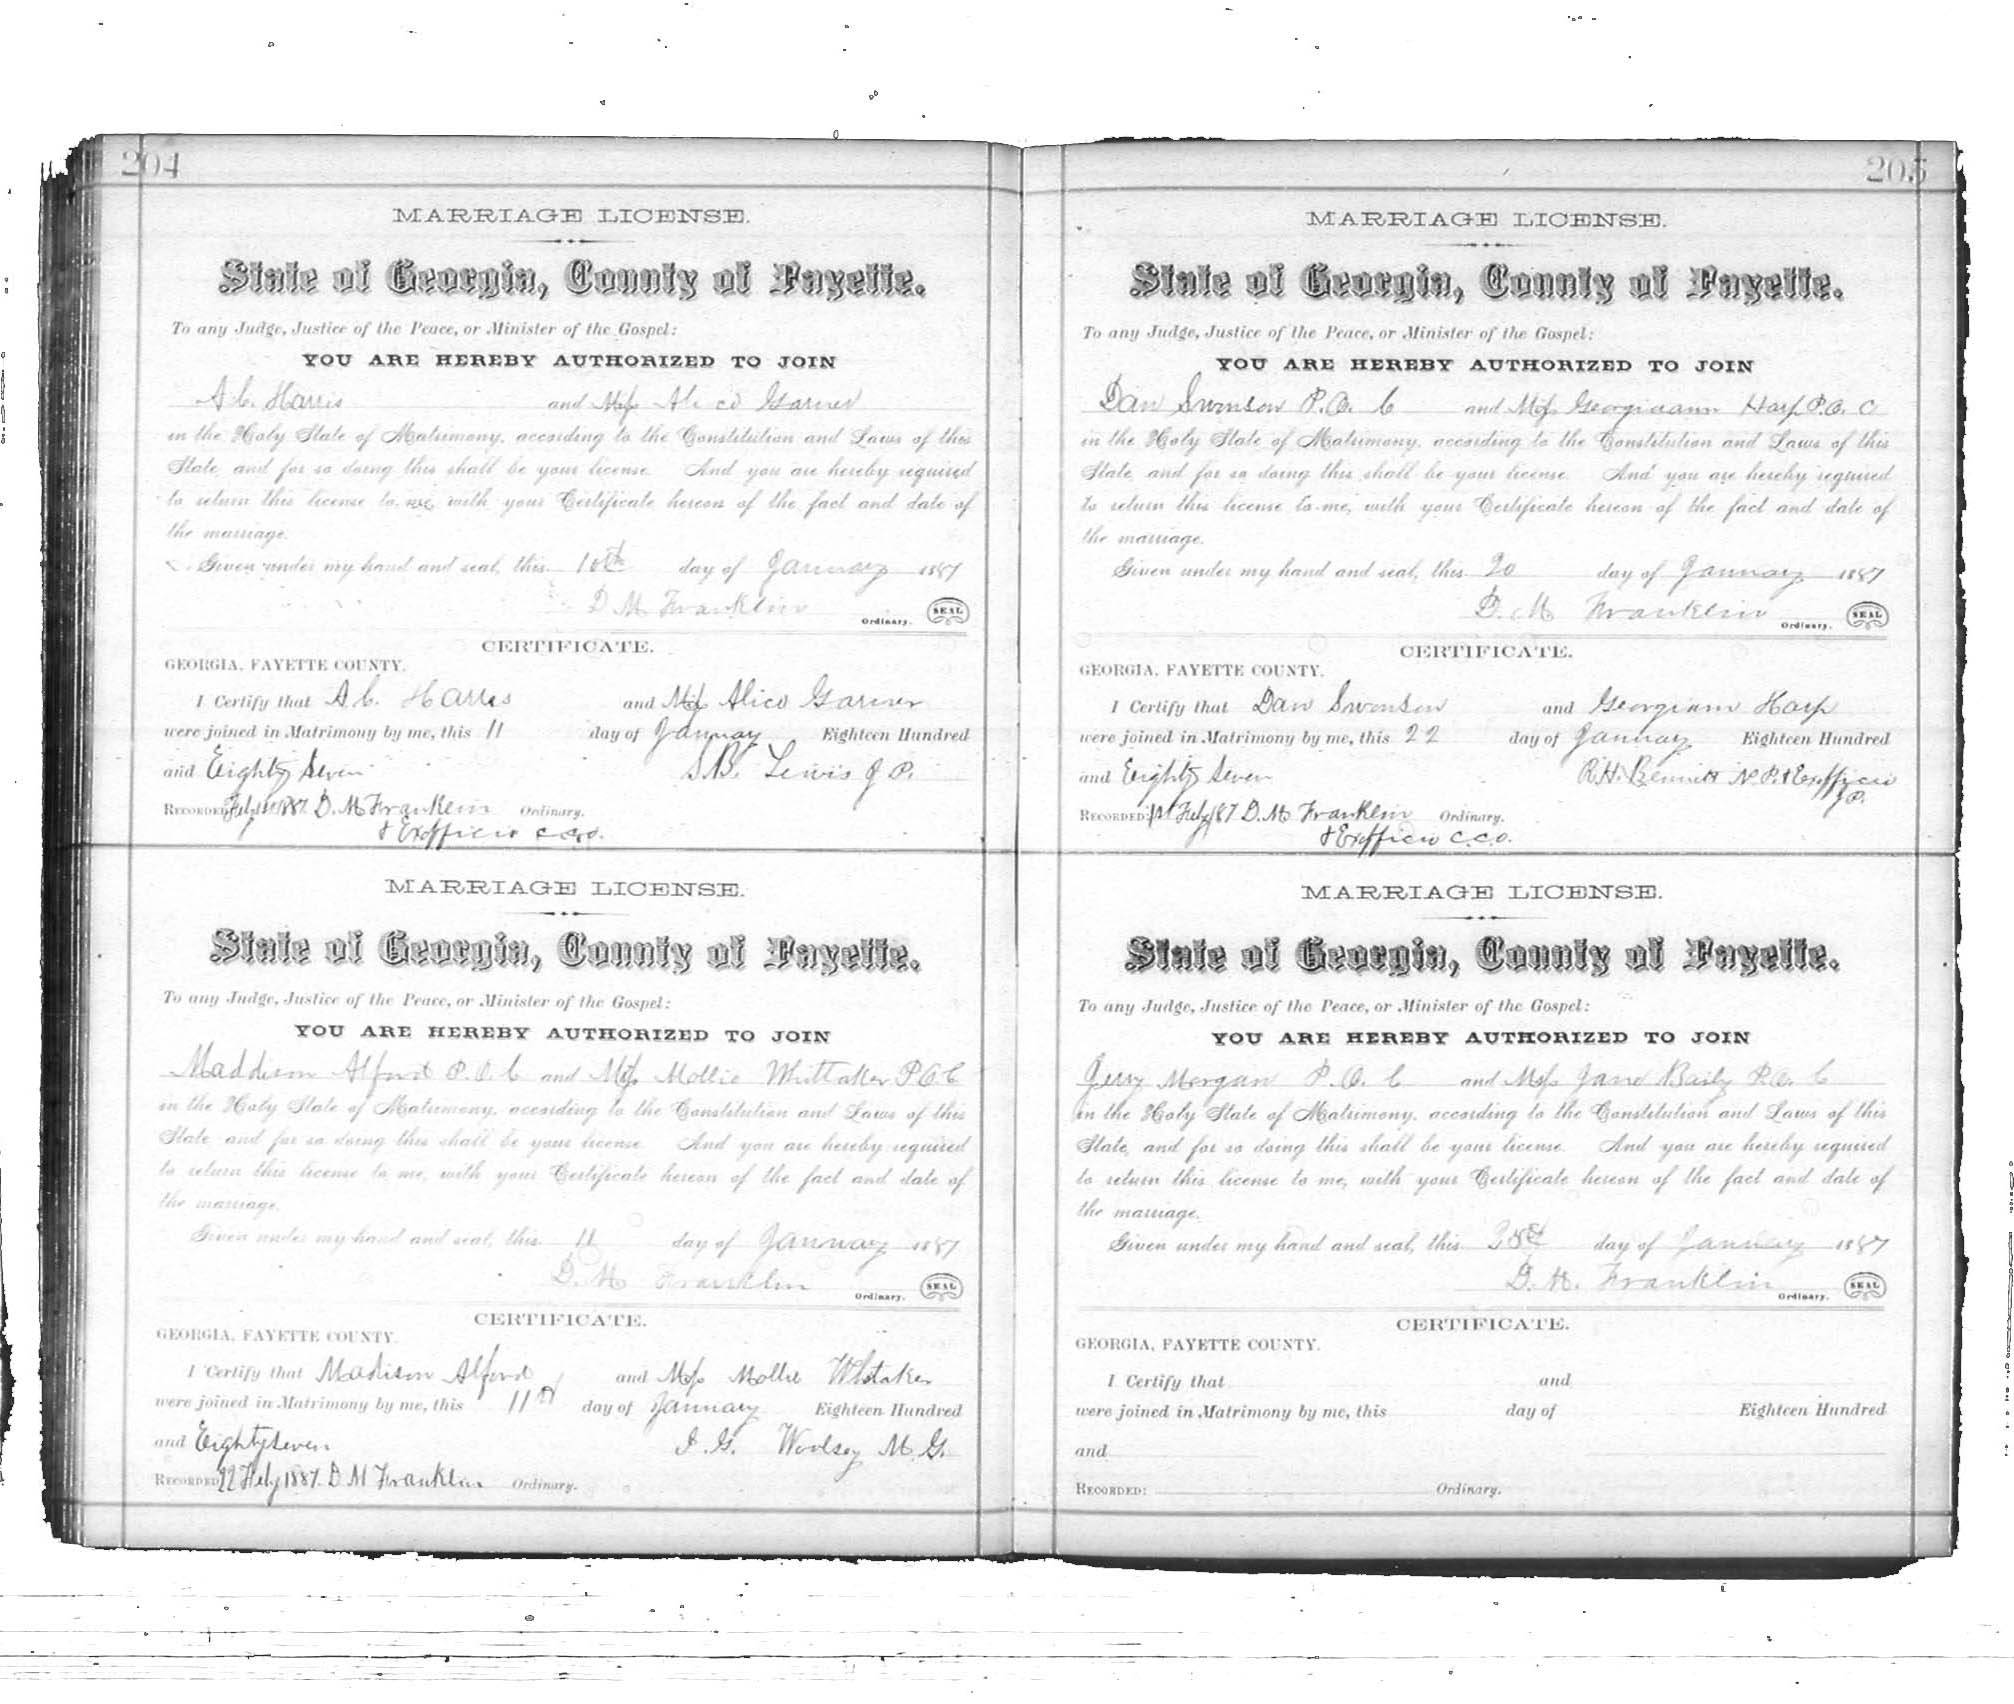 204
MARRIAGE LICENSE.
State of Georgia, County of Fayette.
To any Judge, Justice of the Peace, or Minister of the Gospel:
YOU ARE HEREBY AUTHORIZED TO JOIN
A.C. Harris and Miss Alice Garner
in the Holy State of Matrimony, according to the Constitution and Laws of this
State, and for so doing this shall be your license. And you are hereby required
to return this license to me, with your Certificate hereon of the fact and date of
the marriage.
Given under my hand and seal, this 10th day of January 1887
D. M. Franklin
Ordinary. SEAL
CERTIFICATE.
GEORGIA, FAYETTE COUNTY.
I Certify that A.C. Harris and Miss Alice Garner
were joined in Matrimony by me, this 11 day of January Eighteen Hundred
and Eighty Seven S.B. Lewis J P.
RECORDED 1887. D. M Franklin Ordinary.
& Exofficio c.c.o.
MARRIAGE LICENSE.
State of Georgia, County of Fayette.
To any Judge, Justice of the Peace, or Minister of the Gospel:
YOU ARE HEREBY AUTHORIZED TO JOIN
Maddison Alford P.O.C and Miss Mollie Whittaker P.O.C
in the Holy State of Matrimony, according to the Constitution and Laws of this
State, and for so doing this shall be your license. And you are hereby required
to return this license to me, with your Certificate hereon of the fact and date of
the marriage.
Given under my hand and seal, this 11 day of January 1887
D. M Franklin
Ordinary. SEAL
CERTIFICATE.
GEORGIA, FAYETTE COUNTY.
I Certify that Madison Alford and Miss Mollie Whitaker
were joined in Matrimony by me, this 11th day of January Eighteen Hundred
and Eighty Seven J. G. Woolsey M. G.
RECORDED 22 Feby 1887. D M Franklin Ordinary.
205
MARRIAGE LICENSE.
State of Georgia, County of Fayette.
To any Judge, Justice of the Peace, or Minister of the Gospel:
YOU ARE HEREBY AUTHORIZED TO JOIN
Dan Swonson P.O.C and Miss Georgiaann Harp P.O.C
in the Holy State of Matrimony, according to the Constitution and Laws of this
State, and for so doing this shall be your license. And you are hereby required
to return this license to me, with your Certificate hereon of the fact and date of
the marriage.
Given under my hand and seal, this 20 day of January 1887
D. M Franklin
Ordinary. SEAL
CERTIFICATE.
GEORGIA, FAYETTE COUNTY.
I Certify that Dan Swonson and Georgiann Harp
were joined in Matrimony by me, this 22 day of January Eighteen Hundred
and Eighty Seven R.H. Bennett N.P. & Exofficio
J P.
RECORDED: Feby 87 D. M Franklin Ordinary.
& Exofficio c.c.o.
MARRIAGE LICENSE.
State of Georgia, County of Fayette.
To any Judge, Justice of the Peace, or Minister of the Gospel:
YOU ARE HEREBY AUTHORIZED TO JOIN
Jerry Morgan P.O.C and Miss Jane Baily P.O.C
in the Holy State of Matrimony, according to the Constitution and Laws of this
State, and for so doing this shall be your license. And you are hereby required
to return this license to me, with your Certificate hereon of the fact and date of
the marriage.
Given under my hand and seal, this day of January 1887
D. M. Franklin
Ordinary. SEAL
CERTIFICATE.
GEORGIA, FAYETTE COUNTY.
I Certify that and
were joined in Matrimony by me, this day of Eighteen Hundred
and
RECORDED: Ordinary.